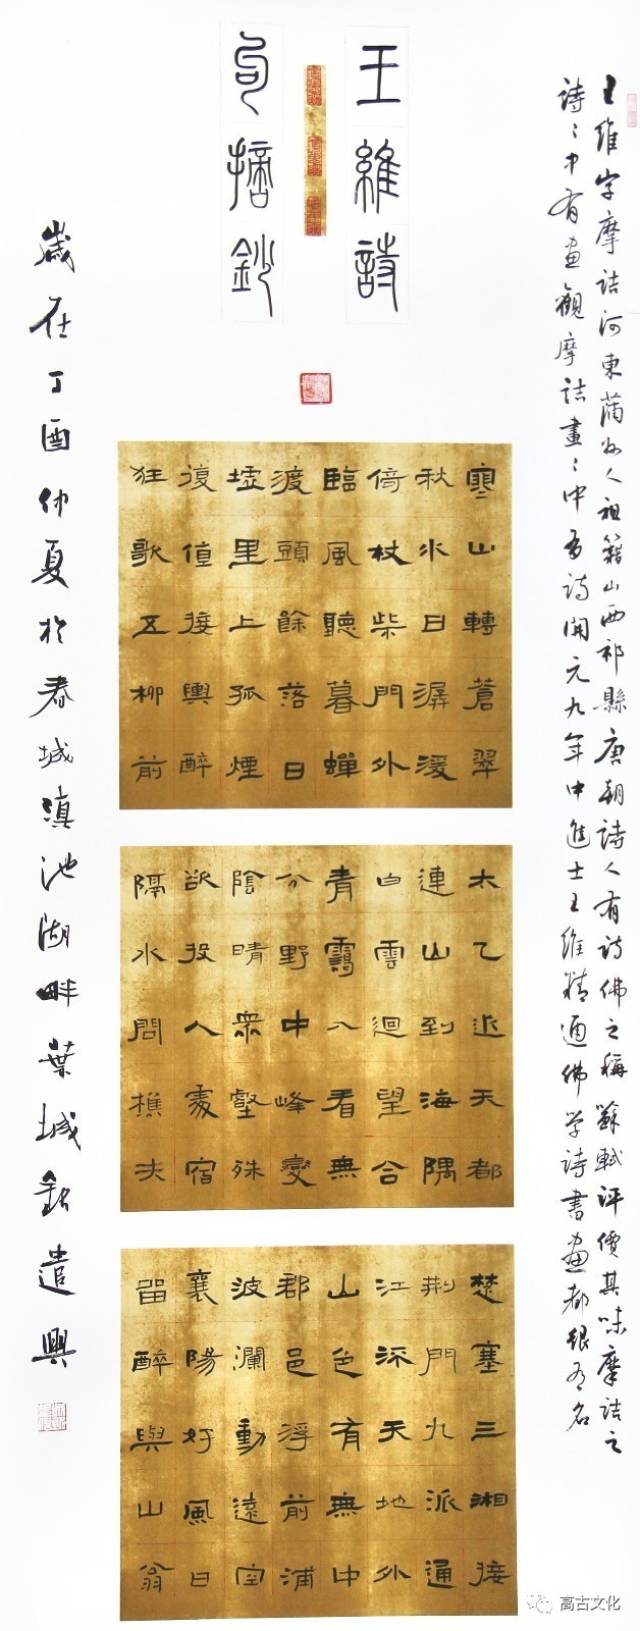 王維詩
句摘鈔
王維字摩詰河東蒲州人祖籍山西祁縣唐朝詩人有詩佛之稱蘇軾評價其味摩詰之
詩〻中有畫觀摩詰畫〻中有詩開元九年中進士王維精通佛学詩書畫都很有名
寒山轉蒼翠
秋水日潺湲
倚杖柴門外
臨風聽暮蟬
渡頭餘落日
墟里上孤煙
復值接輿醉
狂歌五柳前
太乙近天都
連山到海隅
白雲迴望合
青靄入看無
分野中峰變
陰晴眾壑殊
欲投人處宿
隔水問樵夫
楚塞三湘接
荊門九派通
江流天地外
山色有無中
郡邑浮前浦
波瀾動遠空
襄陽好風日
留醉與山翁
歲在丁酉仲夏於春城滇池湖畔葉城銘遣興
高古文化